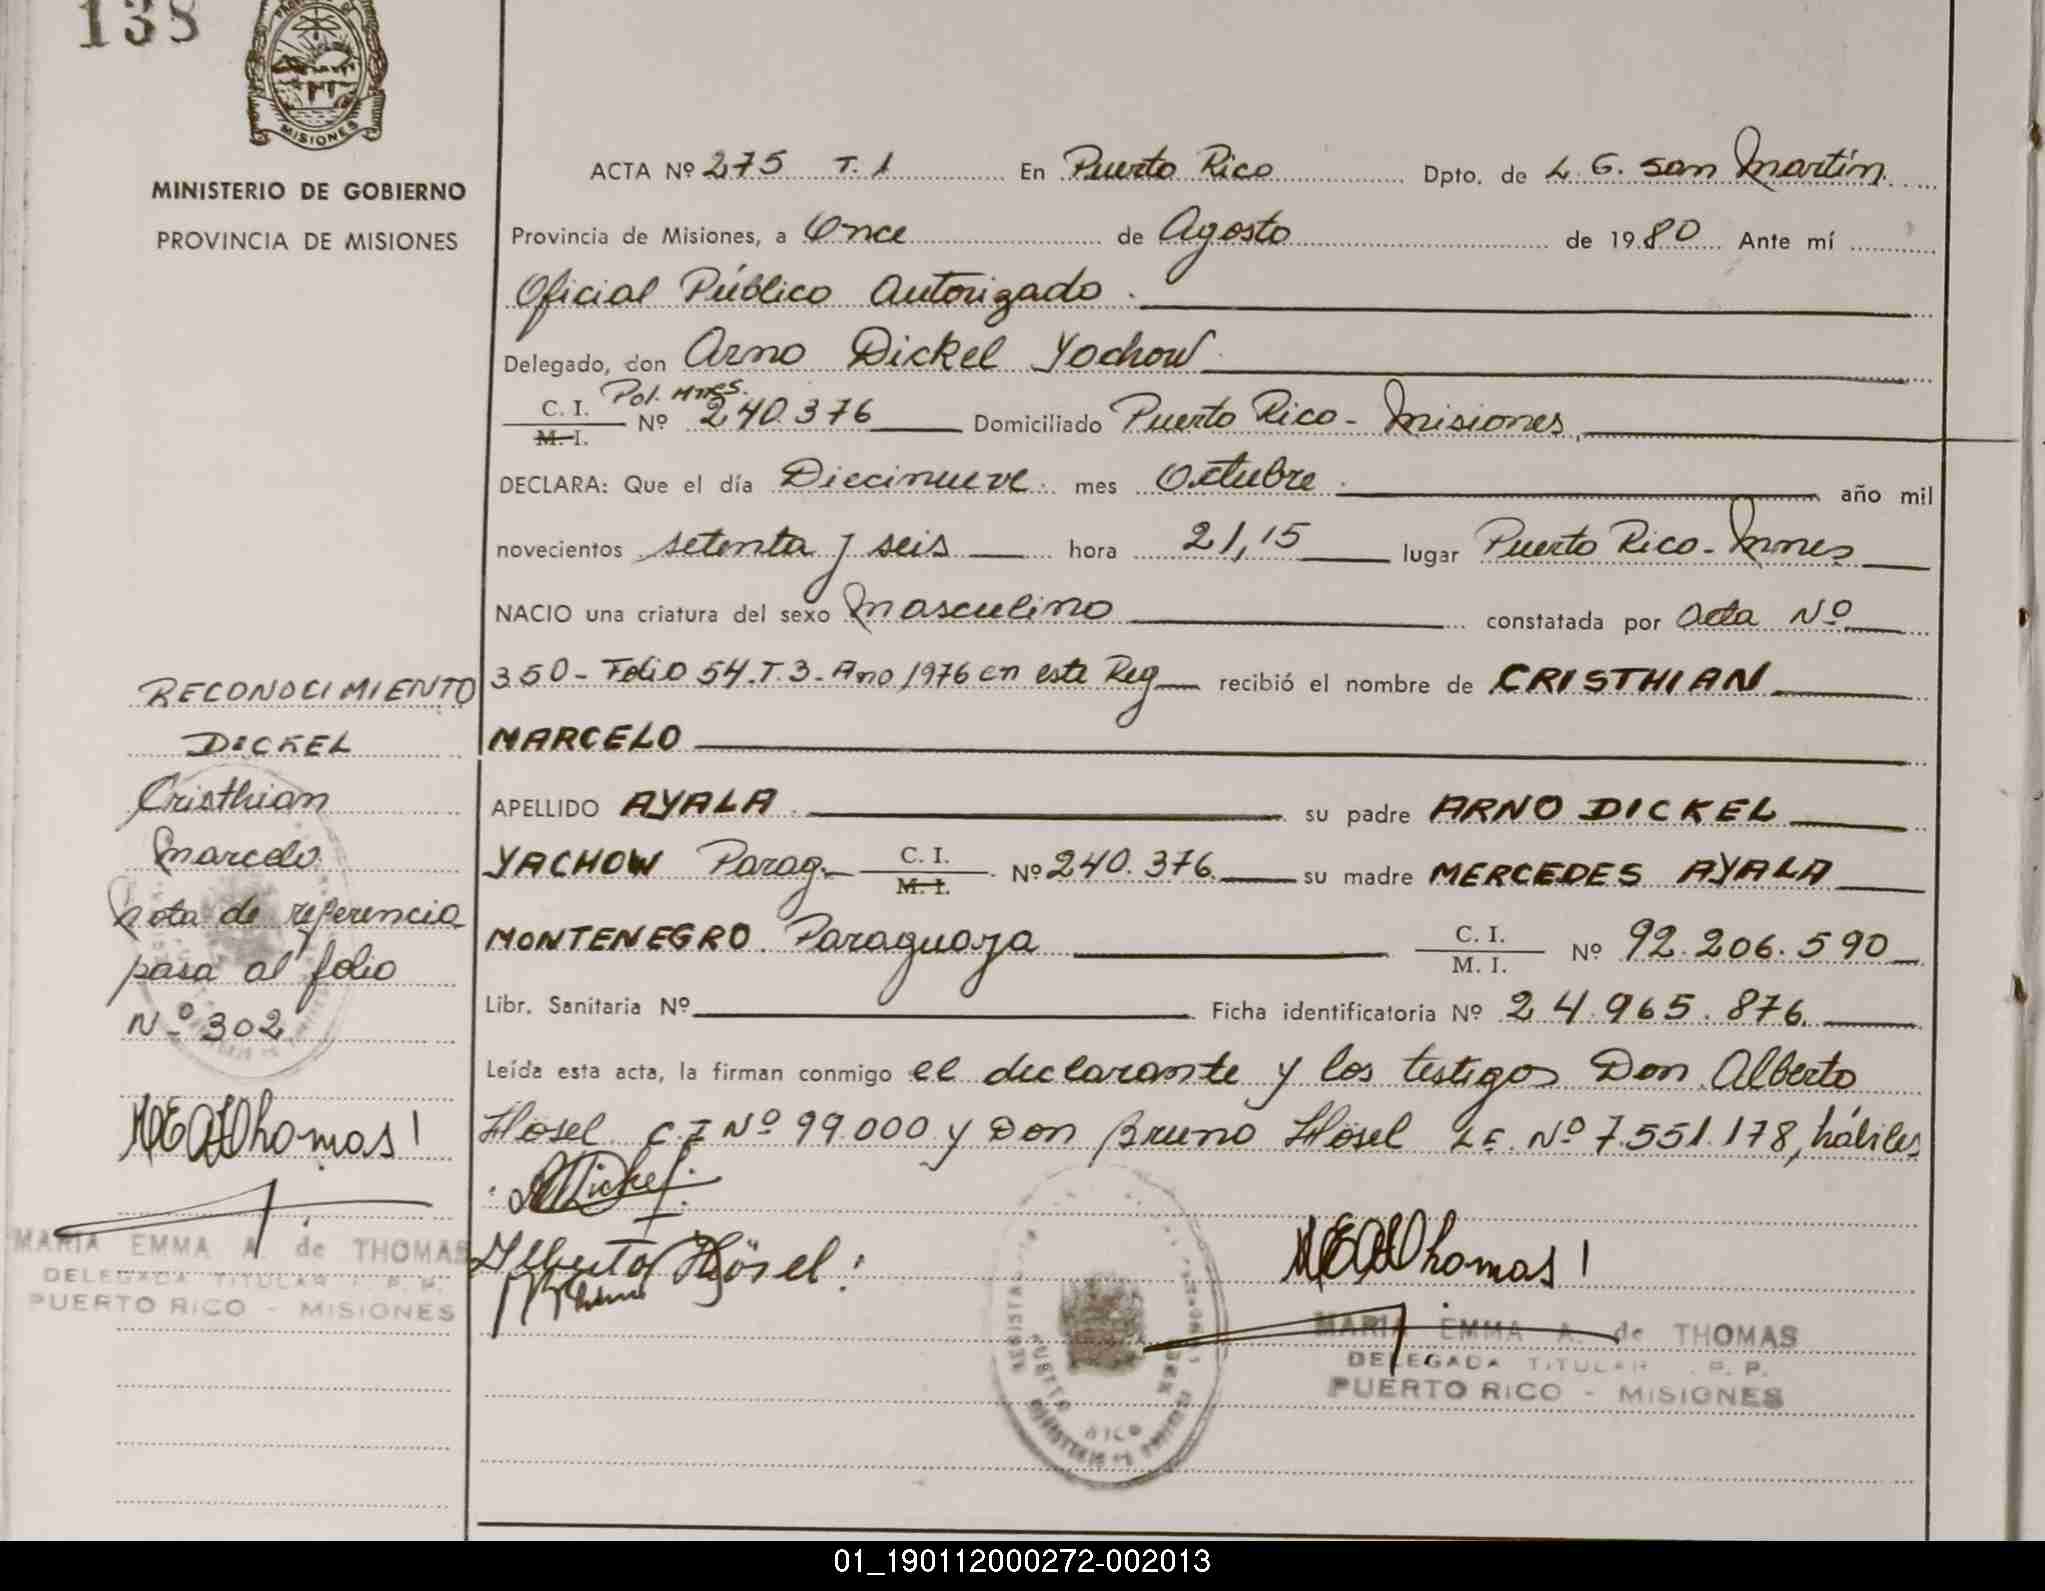 138
MISIONES
MINISTERIO DE GOBIERNO
PROVINCIA DE MISIONES
ACTA Nº 275 T. 1 En Puerto Rico Dpto. de L. G. San Martín
Provincia de Misiones, a Once de Agosto de 1980 Ante mí
Oficial Público Autorizado.
Delegado, don Arno Dickel Yochow
C. I. Pol. Mnes.
M. I. Nº 240.376 Domiciliado Puerto Rico - Misiones,
DECLARA: Que el día Diecinueve mes Octubre año mil
novecientos setenta y seis hora 21,15 lugar Puerto Rico - Mnes
NACIO una criatura del sexo Masculino constatada por Acta Nº
350 - Folio 54. T. 3 - Ano 1976 en este Reg recibió el nombre de CRISTHIAN
MARCELO
APELLIDO AYALA su padre ARNO DICKEL
YACHOW Parag. C. I. M. I. Nº 240.376 su madre MERCEDES AYALA
MONTENEGRO. Paraguaya C. I. M. I. Nº 92.206.590
Libr. Sanitaria Nº Ficha identificatoria Nº 24.965.876.
Leída esta acta, la firman conmigo el declarante y los testigos Don Alberto
Hosel C.I Nº 99.000 y Don Bruno Hösel L.E. Nº 7.551.178, hábiles
ADickel
Alberto Hösel
MEAThomas
MARIA EMMA A. de THOMAS
DELEGADA TITULAR P. P.
PUERTO RICO - MISIONES
RECONOCIMIENTO
DICKEL
Cristhian
Marcelo
Nota de referencia
pasa al folio
Nº 302
MEAThomas
MARIA EMMA A. de THOMAS
DELEGADA TITULAR P. P.
PUERTO RICO - MISIONES
01_190112000272-002013